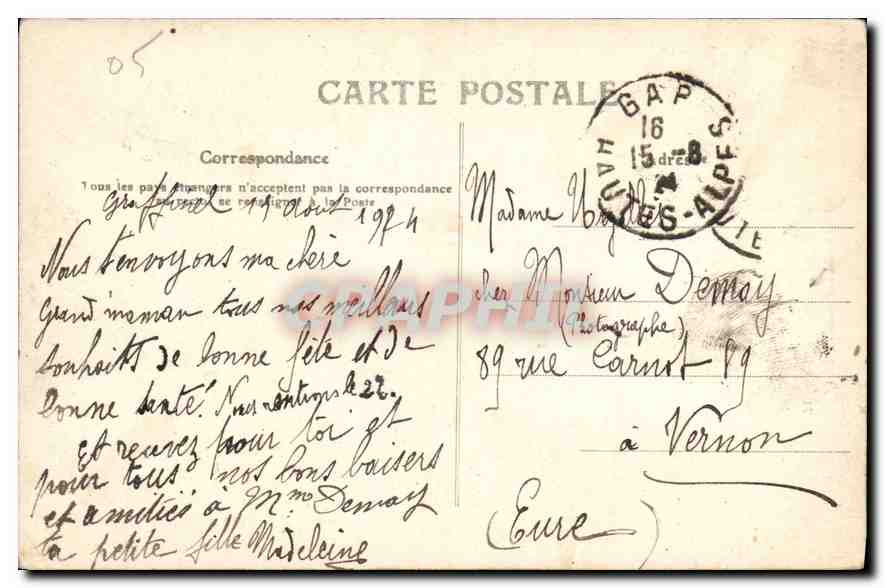 05
CARTE POSTALE
Correspondance
Tous les pays étrangers n'acceptent pas la correspondance
au recto, se renseigner à la Poste
Adresse
GAP
16
15 -8
24
HAUTES-ALPES
août 1924
Nous t'envoyons ma chère
Grand'maman tous nos meilleurs
souhaits de bonne fête et de
bonne santé! Nous rentrons le 22.
Et recevez pour toi et
pour tous nos bons baisers
et amitiés à Mme Demay
ta petite fille Madeleine
Madame
chez Monsieur Demay
(Photographe)
89 rue Carnot 89
à Vernon
(Eure)
CARTE POSTALE
CPAPHIL